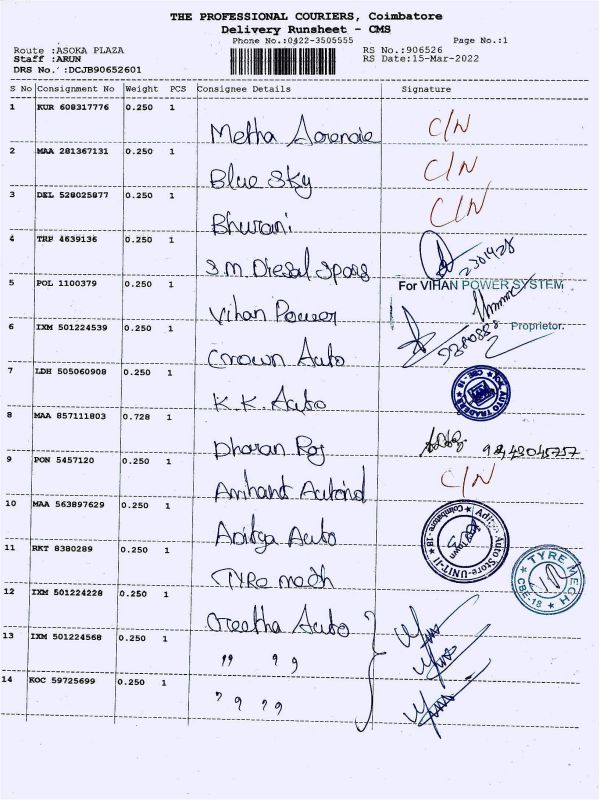 THE PROFESSIONAL COURIERS, Coimbatore
Delivery Runsheet - CMS
Phone No.:0422-3505555 Page No.:1
Route :ASOKA PLAZA RS No.:906526
Staff :ARUN RS Date:15-Mar-2022
DRS No. :DCJB90652601
S No Consignment No Weight PCS Consignee Details Signature
1 KUR 608317776 0.250 1
Metha C/N
2 MAA 281367131 0.250 1
Blue Sky C/N
3 DEL 528025877 0.250 1
Bhurani C/N
4 TRP 4639136 0.250 1
S.M. Diesal Spars
5 POL 1100379 0.250 1
For VIHAN POWER SYSTEM
Vihan Power
Proprietor.
6 IXM 501224539 0.250 1
Crown Auto
7 LDH 505060908 0.250 1
K.K. Auto
AUTO TRADERS
CBE - 18
8 MAA 857111803 0.728 1
Dharan Raj
9 PON 5457120 0.250 1
Arihant C/N
10 MAA 563897629 0.250 1
Aditya Auto
Aditya Auto Store-UNIT-II
Coimbatore - 18
11 RKT 8380289 0.250 1
TYRe mech
TYRE MECH
CBE-18
12 IXM 501224228 0.250 1
Geetha Auto
13 IXM 501224568 0.250 1
" "
14 KOC 59725699 0.250 1
" "